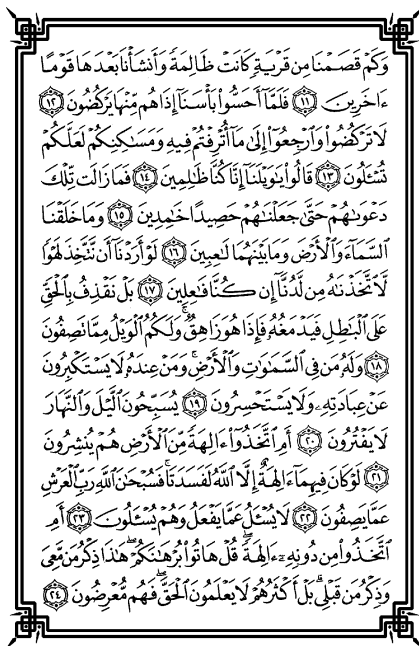 وَكَمۡ قَصَمۡنَا مِن قَرۡيَةٖ كَانَتۡ ظَالِمَةٗ وَأَنشَأۡنَا بَعۡدَهَا قَوۡمًا
ءَاخَرِينَ ١١ فَلَمَّآ أَحَسُّواْ بَأۡسَنَآ إِذَا هُم مِّنۡهَا يَرۡكُضُونَ ١٢
لَا تَرۡكُضُواْ وَٱرۡجِعُوٓاْ إِلَىٰ مَآ أُتۡرِفۡتُمۡ فِيهِ وَمَسَٰكِنِكُمۡ لَعَلَّكُمۡ
تُسۡـَٔلُونَ ١٣ قَالُواْ يَٰوَيۡلَنَآ إِنَّا كُنَّا ظَٰلِمِينَ ١٤ فَمَا زَالَت تِّلۡكَ
دَعۡوَىٰهُمۡ حَتَّىٰ جَعَلۡنَٰهُمۡ حَصِيدًا خَٰمِدِينَ ١٥ وَمَا خَلَقۡنَا
ٱلسَّمَآءَ وَٱلۡأَرۡضَ وَمَا بَيۡنَهُمَا لَٰعِبِينَ ١٦ لَوۡ أَرَدۡنَآ أَن نَّتَّخِذَ لَهۡوٗا
لَّٱتَّخَذۡنَٰهُ مِن لَّدُنَّآ إِن كُنَّا فَٰعِلِينَ ١٧ بَلۡ نَقۡذِفُ بِٱلۡحَقِّ
عَلَى ٱلۡبَٰطِلِ فَيَدۡمَغُهُۥ فَإِذَا هُوَ زَاهِقٞۚ وَلَكُمُ ٱلۡوَيۡلُ مِمَّا تَصِفُونَ
١٨ وَلَهُۥ مَن فِي ٱلسَّمَٰوَٰتِ وَٱلۡأَرۡضِۚ وَمَنۡ عِندَهُۥ لَا يَسۡتَكۡبِرُونَ
عَنۡ عِبَادَتِهِۦ وَلَا يَسۡتَحۡسِرُونَ ١٩ يُسَبِّحُونَ ٱلَّيۡلَ وَٱلنَّهَارَ
لَا يَفۡتُرُونَ ٢٠ أَمِ ٱتَّخَذُوٓاْ ءَالِهَةٗ مِّنَ ٱلۡأَرۡضِ هُمۡ يُنشِرُونَ
٢١ لَوۡ كَانَ فِيهِمَآ ءَالِهَةٌ إِلَّا ٱللَّهُ لَفَسَدَتَاۚ فَسُبۡحَٰنَ ٱللَّهِ رَبِّ ٱلۡعَرۡشِ
عَمَّا يَصِفُونَ ٢٢ لَا يُسۡـَٔلُ عَمَّا يَفۡعَلُ وَهُمۡ يُسۡـَٔلُونَ ٢٣ أَمِ
ٱتَّخَذُواْ مِن دُونِهِۦٓ ءَالِهَةٗۖ قُلۡ هَاتُواْ بُرۡهَٰنَكُمۡۖ هَٰذَا ذِكۡرُ مَن مَّعِيَ
وَذِكۡرُ مَن قَبۡلِيۚ بَلۡ أَكۡثَرُهُمۡ لَا يَعۡلَمُونَ ٱلۡحَقَّۖ فَهُم مُّعۡرِضُونَ ٢٤